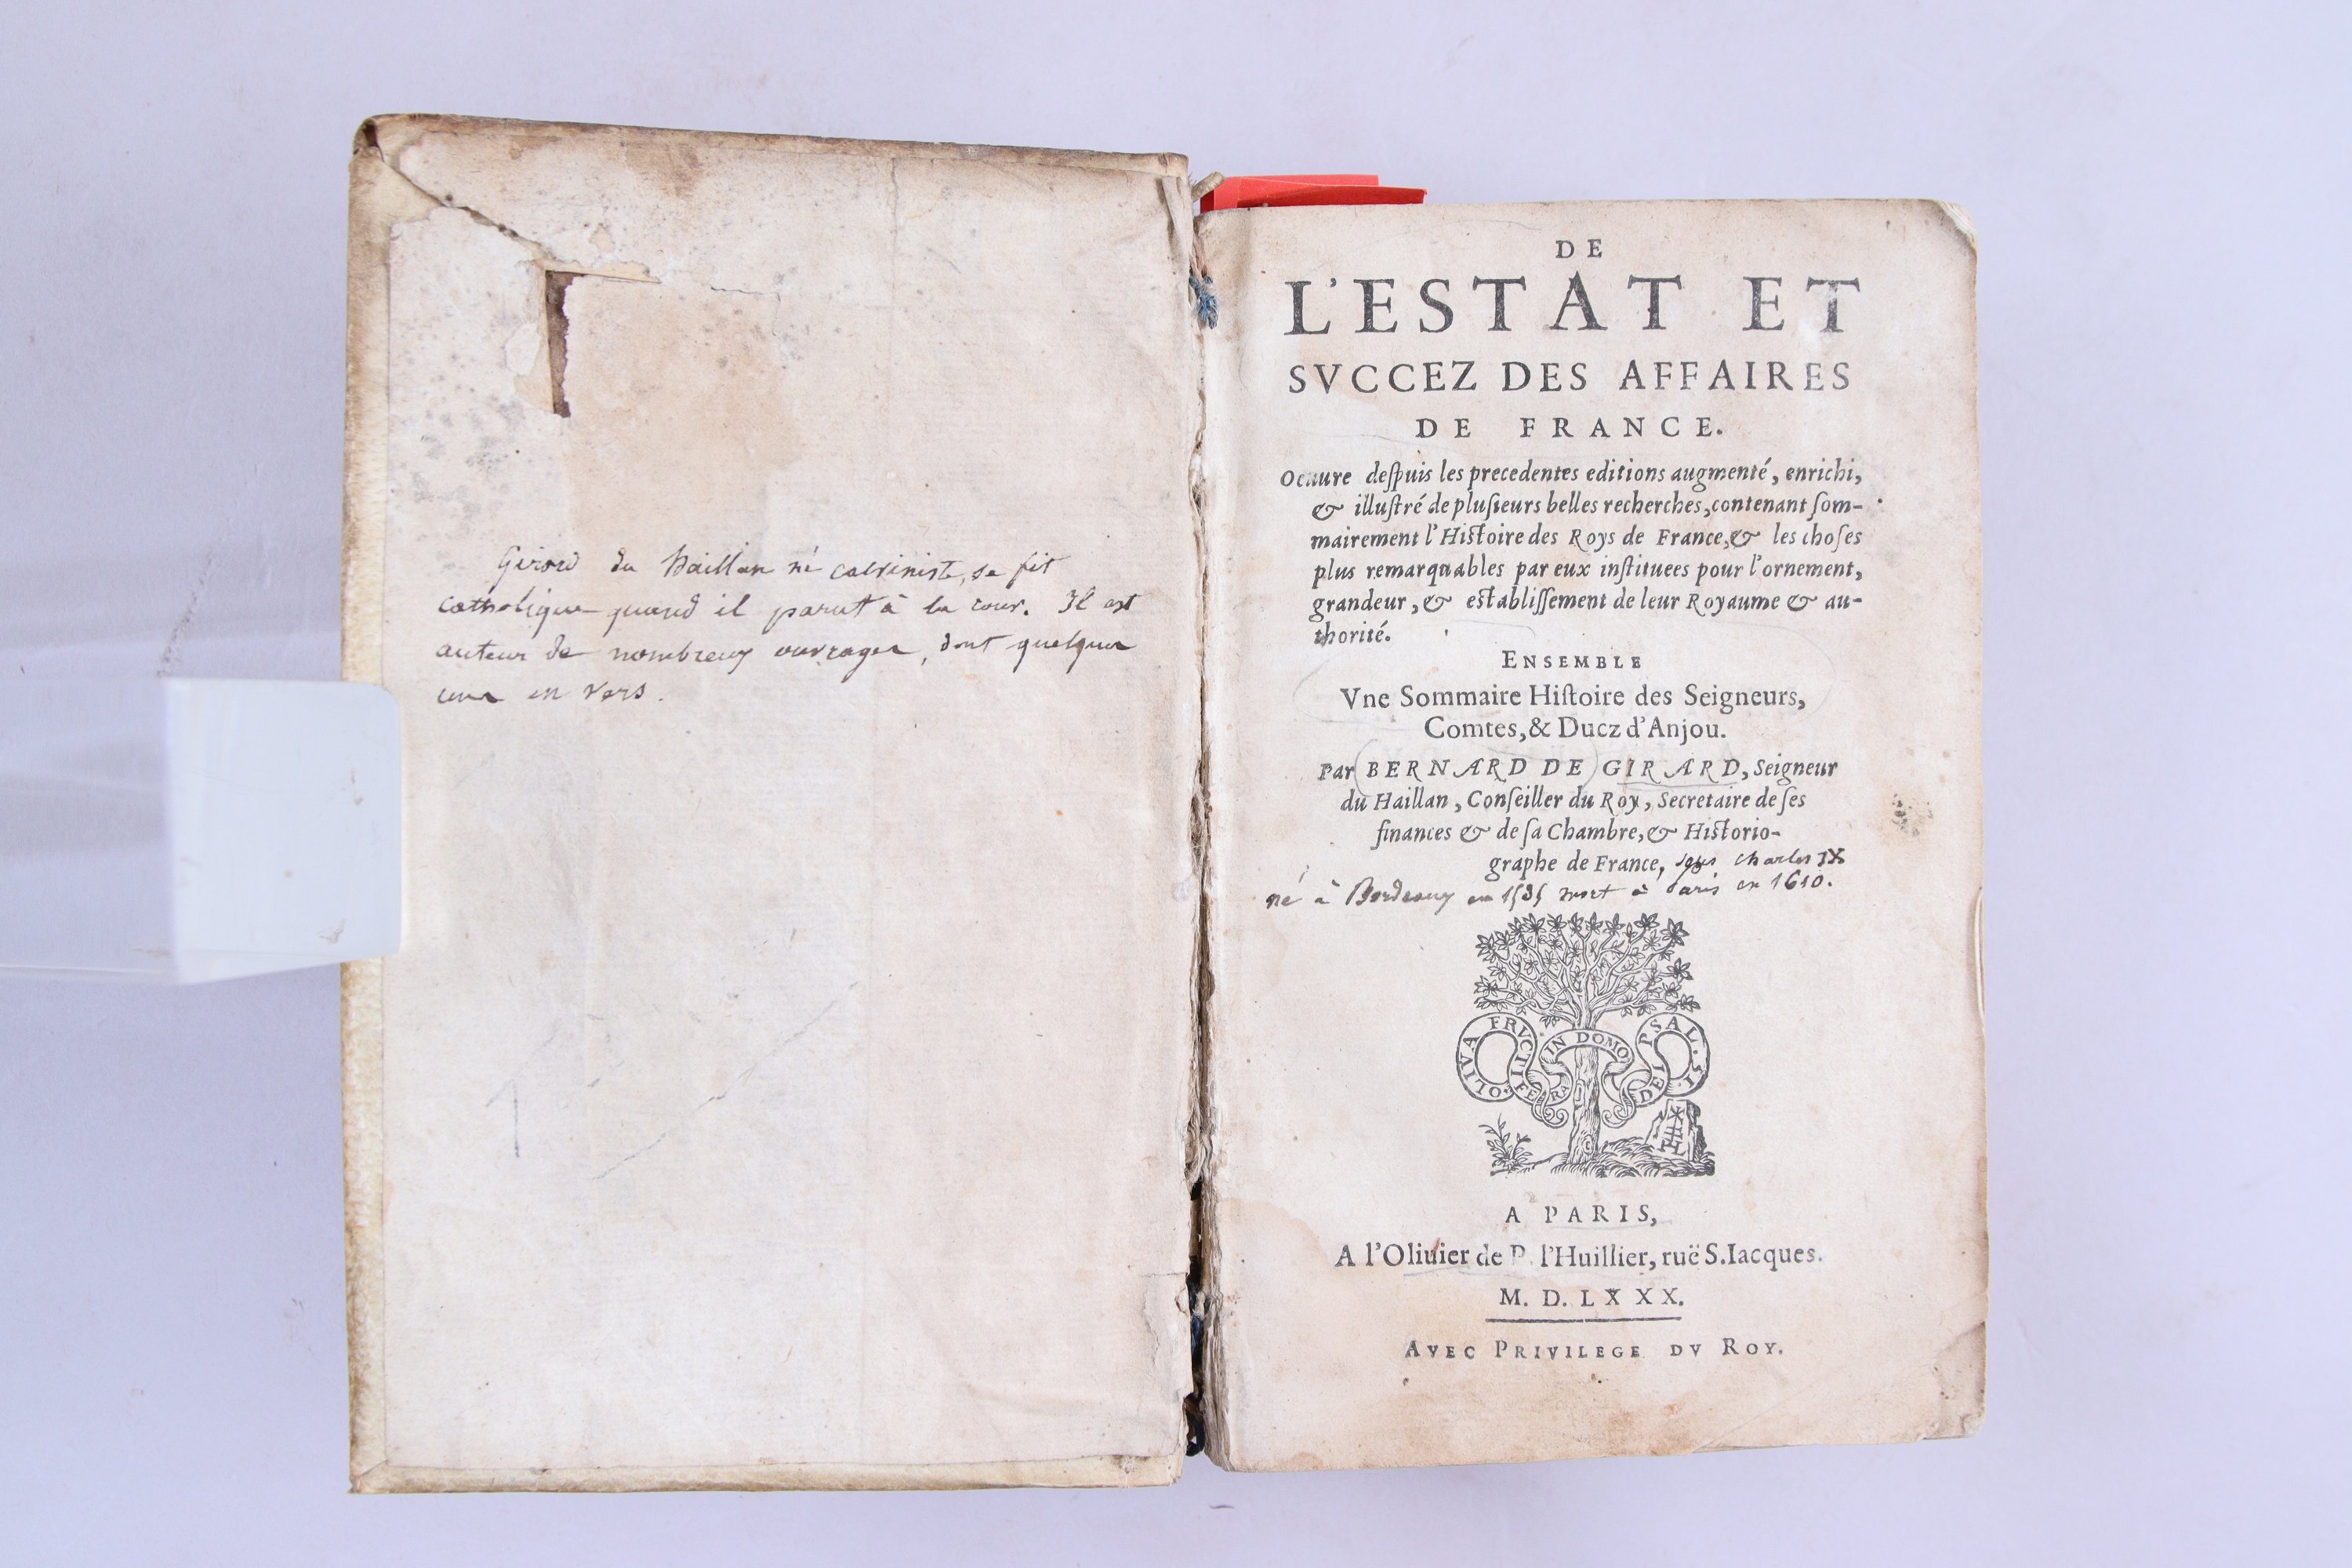 Girard du Haillan né calviniste, se fit
catholique quand il parut à la cour. Il est
auteur de nombreux ouvrages, dont quelques
uns en vers.
DE
L'ESTAT ET
SVCCEZ DES AFFAIRES
DE FRANCE.
Oeuure deſpuis les precedentes editions augmenté, enrichi,
& illuſtré de pluſieurs belles recherches, contenant ſom-
mairement l'Hiſtoire des Roys de France, & les choſes
plus remarquables par eux inſtituees pour l'ornement,
grandeur, & eſtabliſſement de leur Royaume & au-
thorité.
ENSEMBLE
Vne Sommaire Hiſtoire des Seigneurs,
Comtes, & Ducz d'Anjou.
Par BERNARD DE GIRARD, Seigneur
du Haillan, Conſeiller du Roy, Secretaire de ſes
finances & de ſa Chambre, & Hiſtorio-
graphe de France, sous Charles IX
né à Bordeaux en 1535 mort à Paris en 1610.
OLIVA FRVCTIFERA IN DOMO DEI PSAL. 51
A PARIS,
A l'Oliuier de P. l'Huillier, ruë S. Iacques.
M. D. LXXX.
AVEC PRIVILEGE DV ROY.